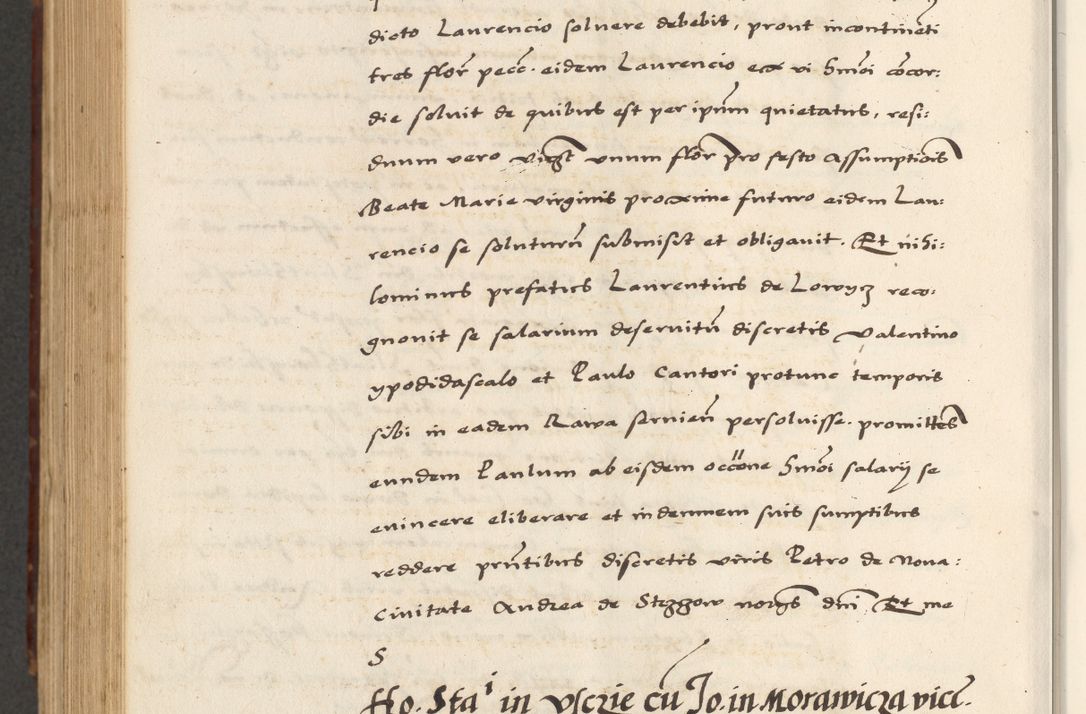 dicto Laurencio soluere debebit, prout incontineti
tres flor pecc. eidem Laurencio ex vi hmoi cocor:
die soluit de quibus est per ipum quietatus, resi:
duum vero vigt unum flor pro festo Assumptiois
Beate Marie virginis proxime futuro eidem Lau:
rencio se soluturu submisit et obligauit. Et nihi:
lominus prefatus Laurentius de Lowycz reco:
gnouit se salarium deseruitu discretis Valentino
ypodidascalo et Paulo Cantori protunc temporis
sibi in eadem Rawa seruien persoluisse. promittes
eundem Paulum ab eisdem occone hmoi salarij se
euincere eliberare et indemnem suis sumptibus
reddere pntibus discretis viris Petro de Noua:
Ciuitate Andrea de Stczgow norys dni Et me
S
Ho. Stai in Vsczie cu Jo. in Morawicza vice.